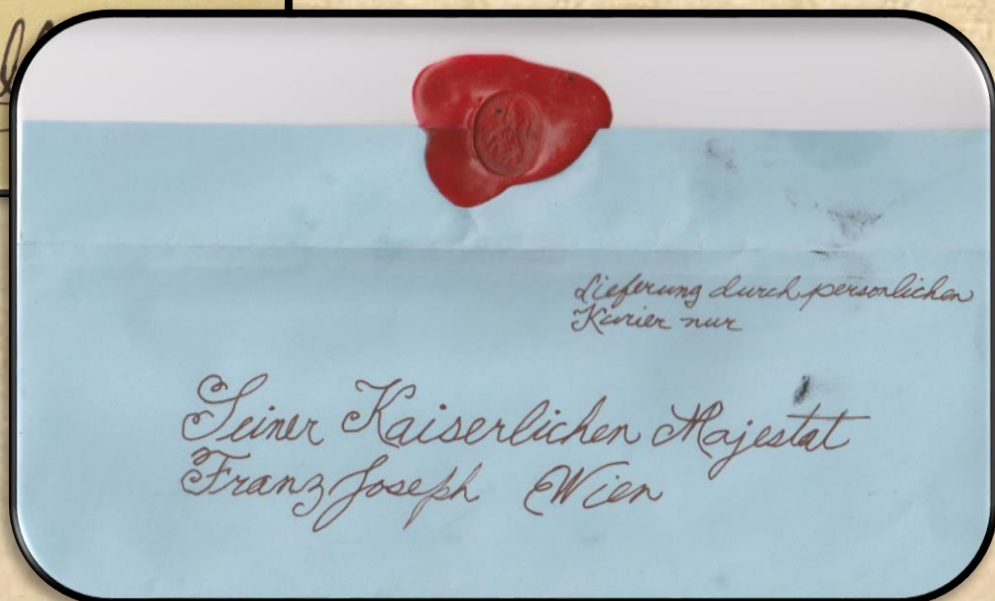 Lieferung durch personlichen
Kurier nur
Seiner Kaiserlichen Majestat
Franz Joseph Wien